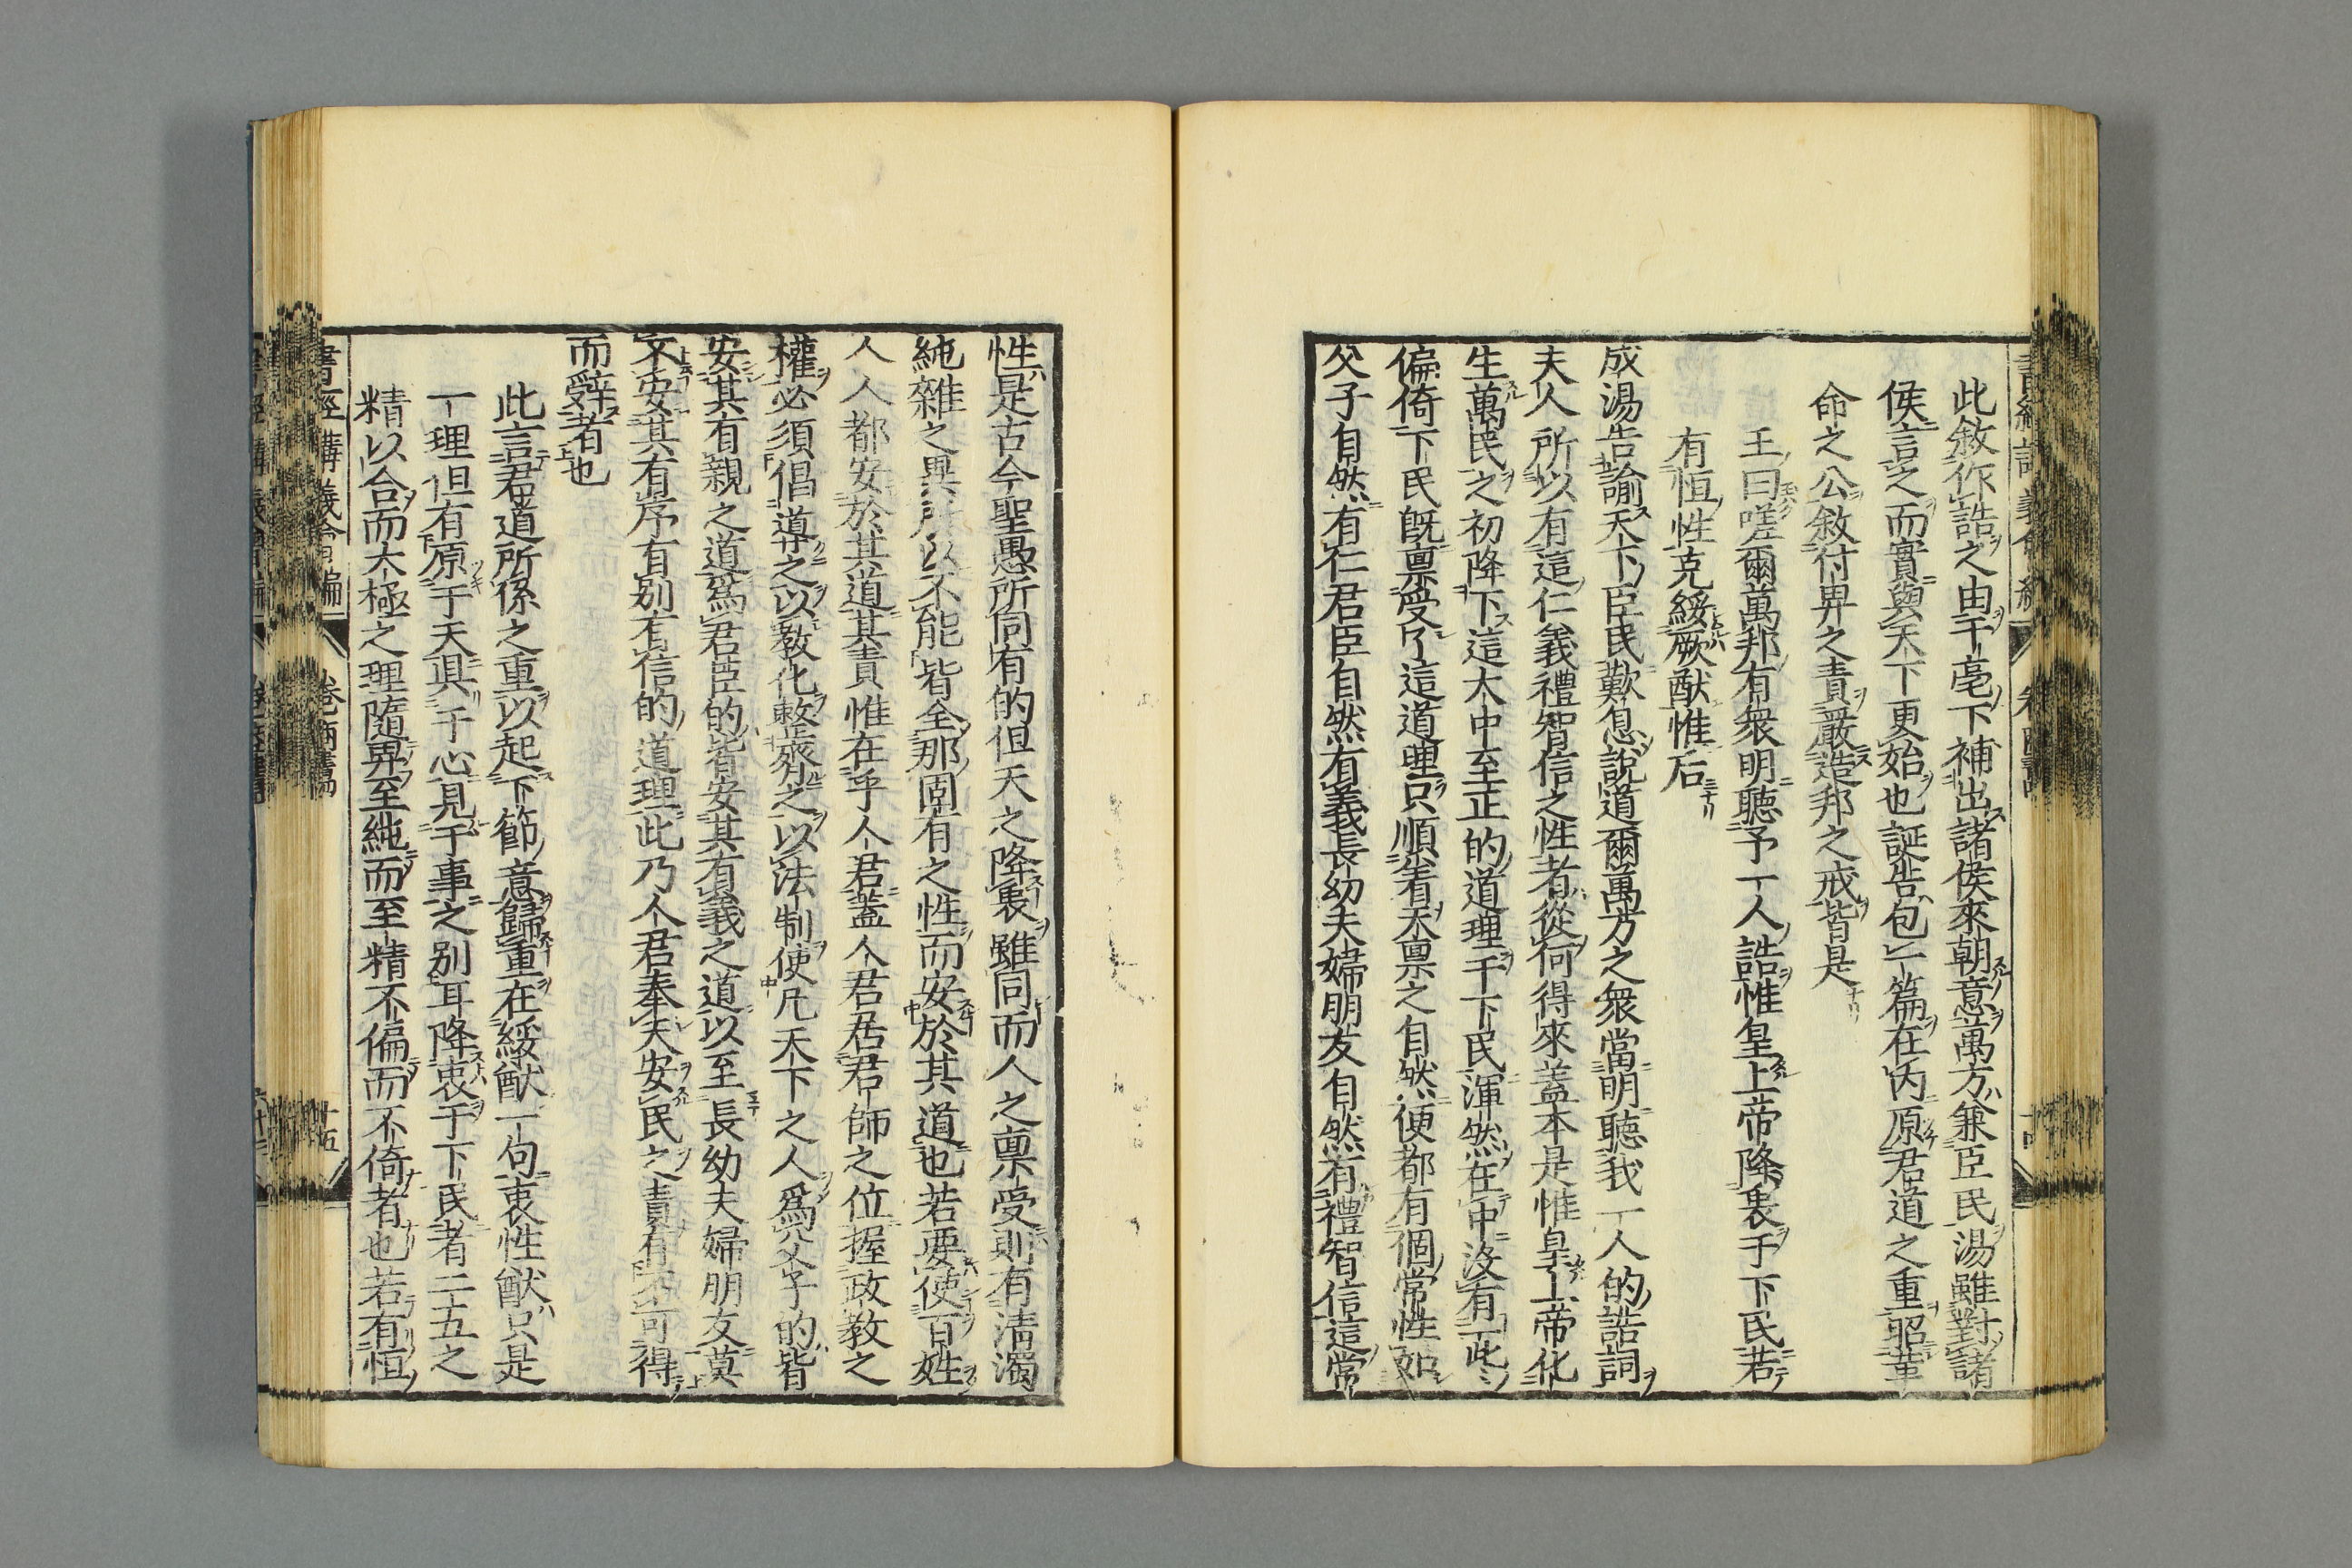 此敘作誥之由于亳下補出諸侯來朝意萬方兼臣民湯雖對諸
侯言之而實與天下更始也誕告包一篇在內原君道之重昭革
命之公敘付畀之責嚴造邦之戒皆是
王曰嗟爾萬邦有衆明聽予一人誥惟皇上帝降衷于下民若
有恒性克綏厥猷惟后
成湯告諭天下臣民歎息說道爾萬方之衆當明聽我一人的誥詞
夫人所以有這仁義禮智信之性者從何得來蓋本是惟皇上帝化
生萬民之初降下這大中至正的道理于下民渾然在中沒有一些
偏倚下民旣稟受了這道理只順着天稟之自然便都有個常性如
父子自然有仁君臣自然有義長幼夫婦朋友自然有禮智信這常
性是古今聖愚所同有的但天之降衷雖同而人之稟受則有清濁
純雜之異所以不能皆全那固有之性而安於其道也若要使百姓
人人都安於其道其責惟在乎人君蓋人君居君師之位握政教之
權必須倡導之以教化整齊之以法制使凡天下之人爲父子的皆
安其有親之道爲君臣的皆安其有義之道以至長幼夫婦朋友莫
不安其有序有別有信的道理此乃人君奉天安民之責有不可得
而辭者也
此言君道所係之重以起下節意歸重在綏猷一句衷性猷只是
一理但有原于天具于心見于事之別耳降衷于下民者二五之
精以合而太極之理隨畀至純而至精不偏而不倚者也若有恒
書經講義會編
卷商書
十五